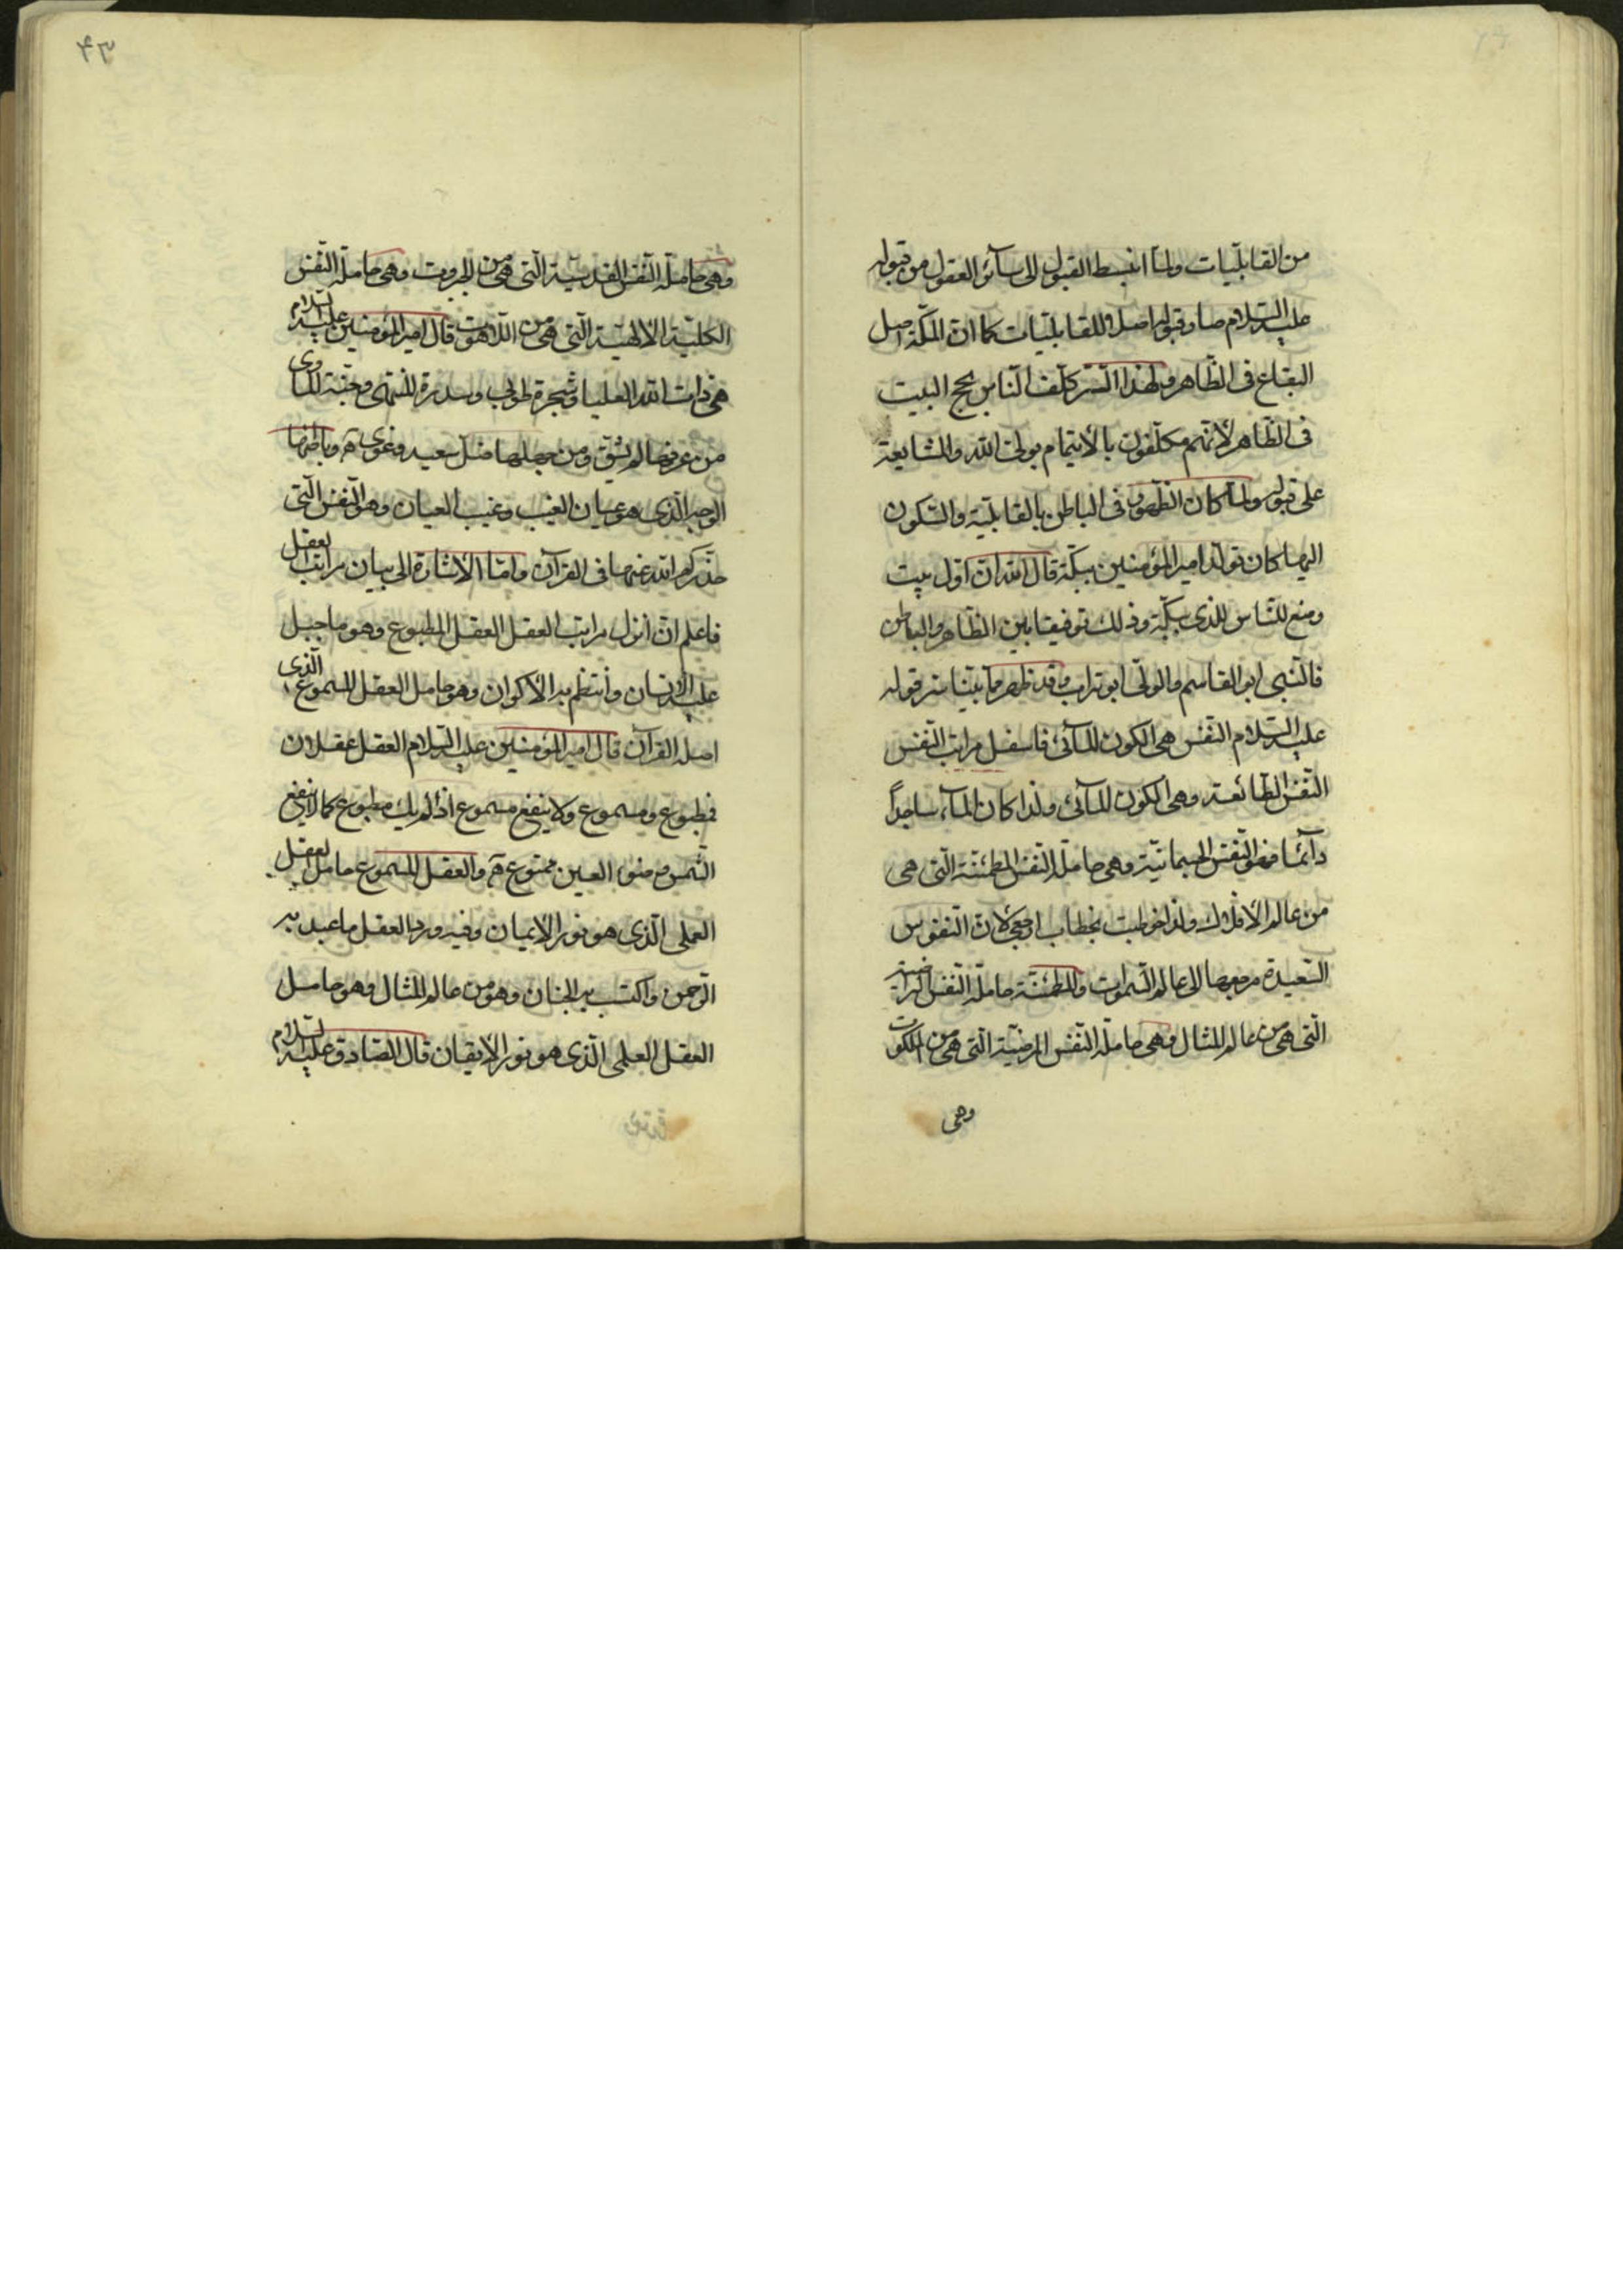 من القابليات ولما انبسط القبول الى سآئر العقول من قبوله
عليه السلام صار قبوله اصلا للقابليات كما ان المكة اصل
البقاع فى الظاهر ولهذا السر كلف الناس بحج البيت
فى الظاهر لانهم مكلفون بالايتمام بولى الله والمشايعة
على قبوله ولما كان الظهور فى الباطن بالقابلية والسكون
اليها كان تولد امير المؤمنين بمكة قال الله ان اول بيت
وضع للناس للذى ببكة وذلك توفيقا بين الظاهر والباطن
فالنبى ابو القاسم والولى ابو تراب وقد ظهر مما بينا سر قوله
عليه السلام النفس هى الكون المآئى فاسفل مراتب النفس
النفس الطائعة وهى الكون المآئى ولذا كان المآء ساجداً
دآئما فهو النفس الجسمانية وهى حاملة النفس المطمئنة التى هى
من عالم الافلاك ولذا خوطبت بخطاب ارجعى لان النفوس
السعيدة مرجعها الى عالم السموات والمطمئنة حاملة النفس الراضية
التى هى من عالم المثال وهى حاملة النفس المرضية التى هى من الملكوت
وهى
٤٣
وهى حاملة النفس القدسية التى هى من الجبروت وهى حاملة النفس
الكلية الالهية التى هى من اللاهوت قال امير المؤمنين عليه السلام
هى ذات الله العليا وشجرة طوبى وسدرة المنتهى وجنة المأوى
من عرفها لم يشق ومن جهلها ضل سعيه وغوى هـ وباطنها
الوجه الذى هو عيان الغيب وغيب العيان وهو النفس التى
حذركم الله عنها فى القرآن واما الاشارة الى بيان مراتب العقل
فاعلم ان انزل مراتب العقل العقل المطبوع وهو ما جبل
عليه الانسان وانتظم به الاكوان وهو حامل العقل المسموع الذى
اصله القرآن قال امير المؤمنين عليه السلام العقل عقلان
فمطبوع ومسموع ولا ينفع مسموع اذا لم يك مطبوع كما لا ينفع
الشمس وضوء العين ممنوع هـ والعقل المسموع حامل العقل
العملى الذى هو نور الايمان وفيه ورد العقل ما عبد به
الرحمن واكتسب به الجنان وهو من عالم المثال وهو حامل
العقل العلمى الذى هو نور الايقان قال الصادق عليه السلام